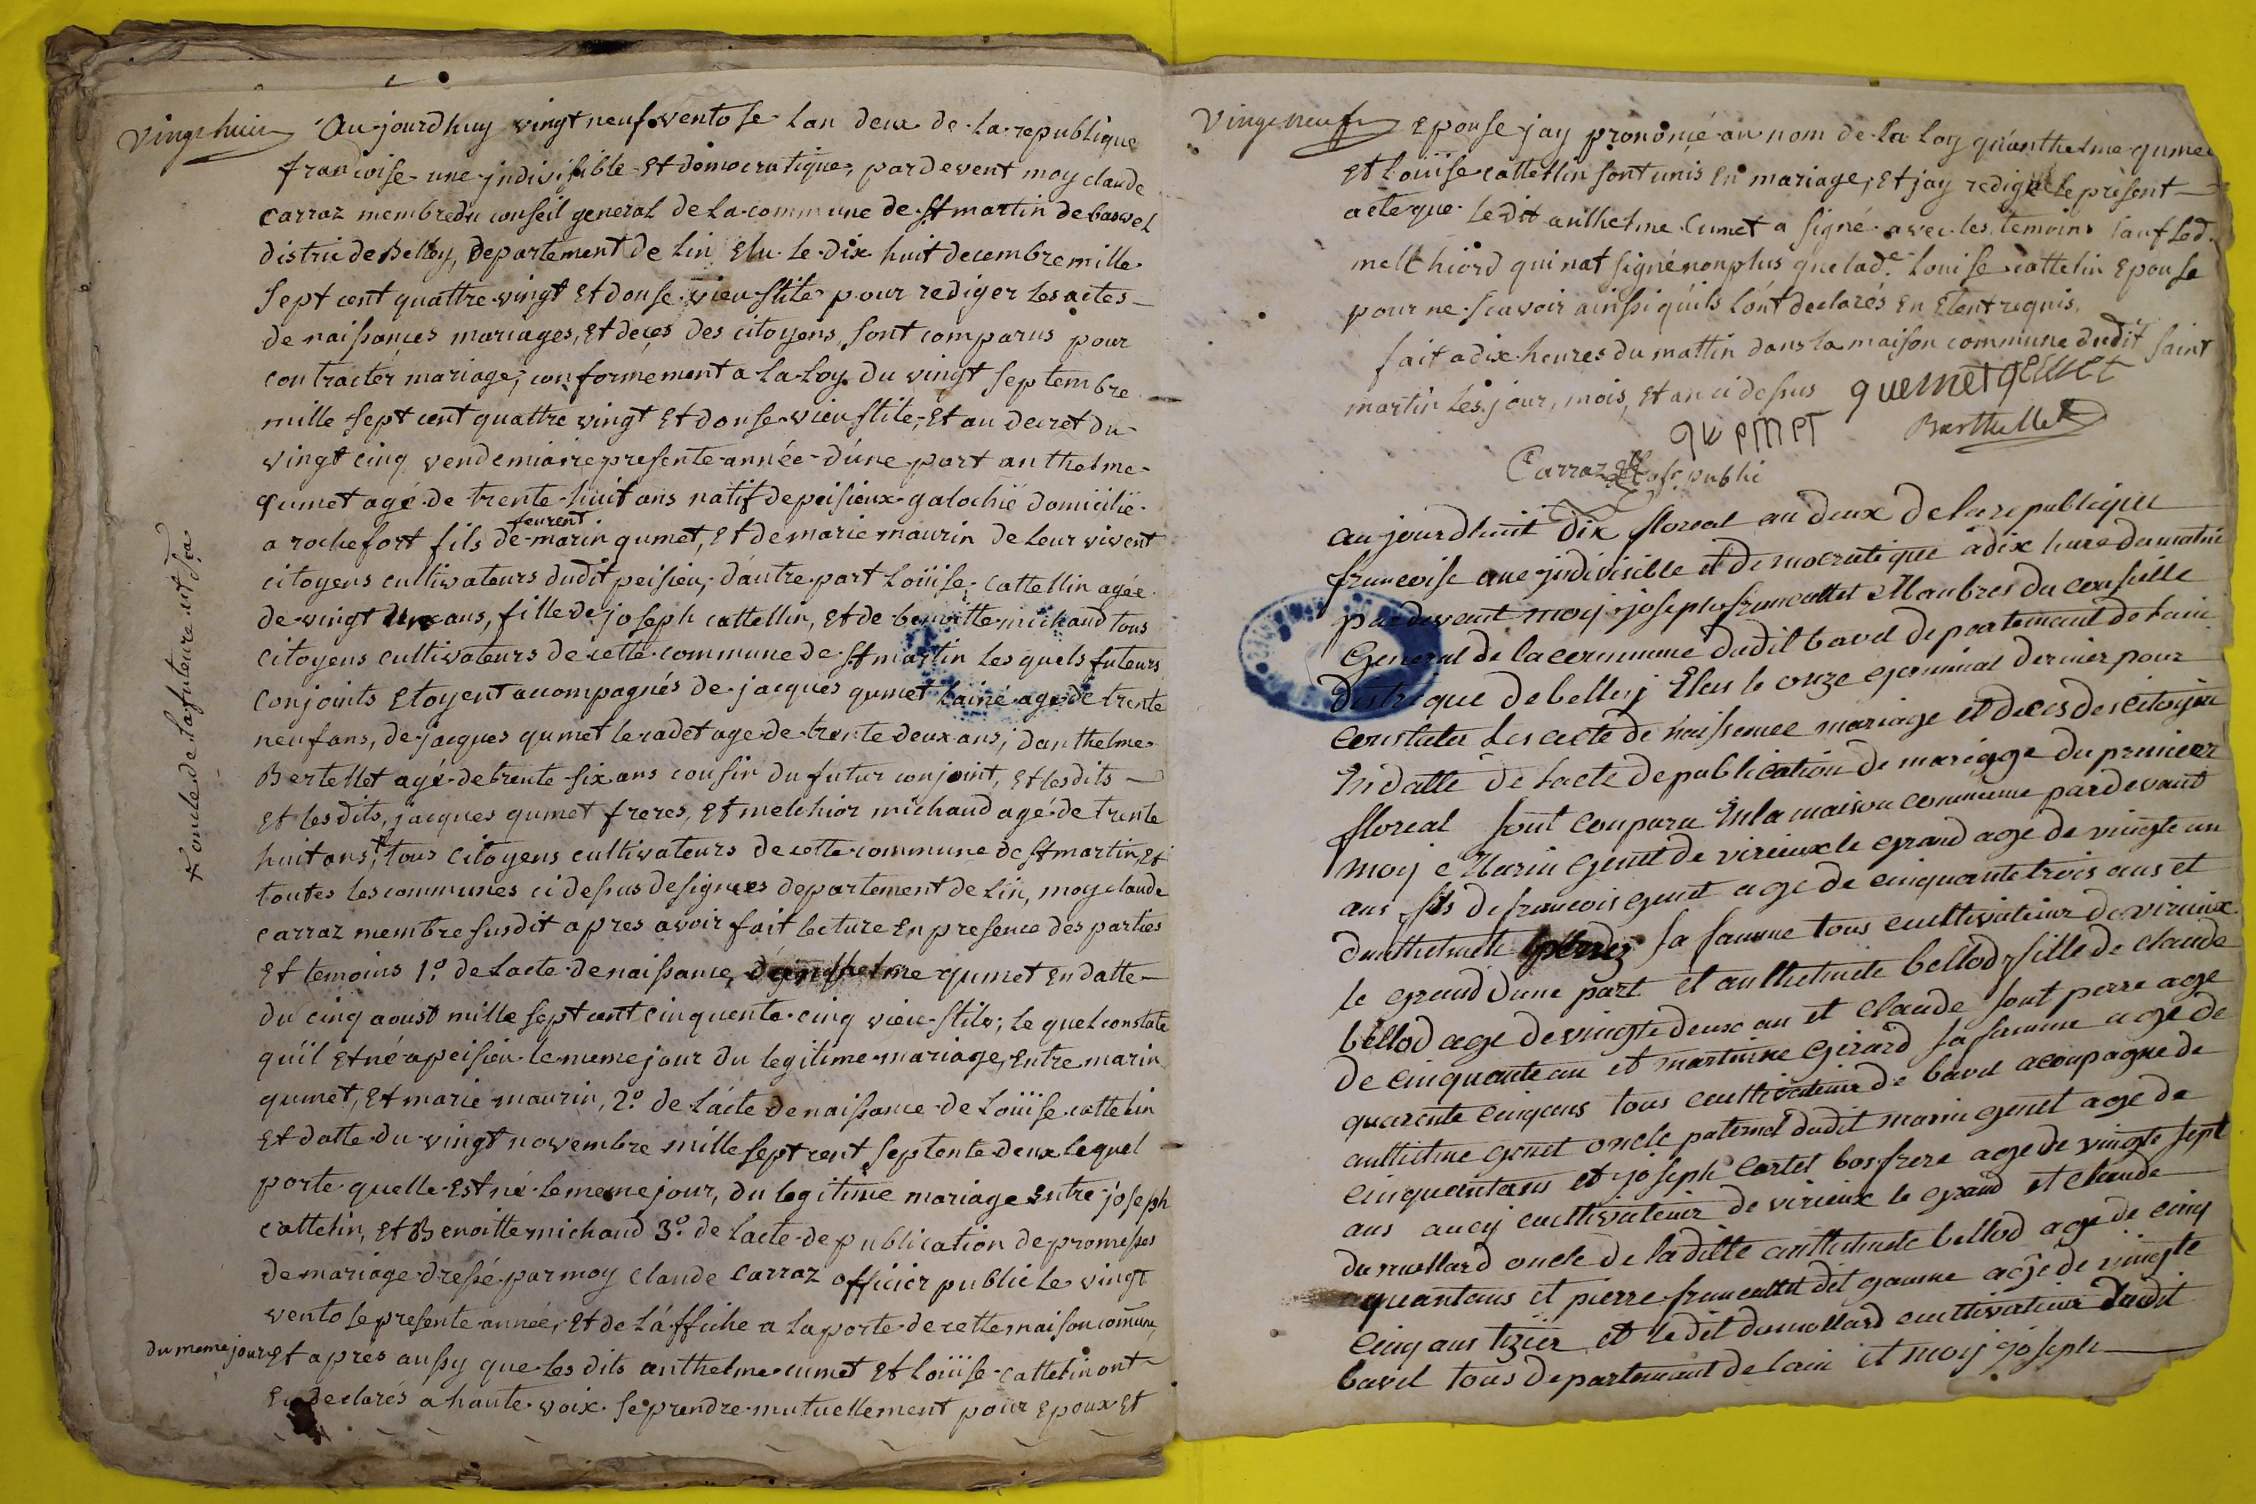 Vingt huit
Aujourdhuy vingt neuf ventose lan deux de la republique
francoise une jndivisible et democratique, pardevent moy claude
carraz membre du conseil general de la commune de st martin de bavvel
distric de Belley, departement de lin elu le dix huit decembre mille
sept cent quattre vingt et douse vieu stile pour rediger les actes
de naissances mariages, et deces des citoyens, sont comparus pour
contracter mariage, conformement a la loy du vingt septembre
mille sept cent quattre vingt et douse vieu stile, et au decret du
vingt cinq vendemiaire presente année d'une part anthelme
qumet agé de trente huit ans natif de peisieux galochië domicilië
a rochefort fils de feurent marin qumet, et de marie maurin de leur vivent
citoyens cultivateurs dudit peisieu, dautre part Loüise cattellin agée
de vingt ans, fille de joseph cattellin, et de benoitte michaud tous
citoyens cultivateurs de cette commune de st martin les quels futeurs
conjoints etoyent acompagnés de jacques qumet lainé agé de trente
neuf ans, de jacques qumet le cadet age de trente deux ans, danthelme
Bertellet agé de trente six ans cousin du futur conjoint, et lesdits
et lesdits, jacques qumet freres, et melchior michaud agé de trente
huit ans, + tous citoyens cultivateurs de cette commune de st martin, et
toutes les communes ci dessus designées departement de Lin, moy claude
carraz membre susdit apres avoir fait lecture en presence des parties
et temoins 1.º de lacte de naissance, d'anthelme qumet en datte
du cinq aoust mille sept cent cinquente cinq vieu stile; le quel constate
qu'il et né a peisieu le meme jour du legitime mariage, entre marin
qumet, et marie maurin, 2.º de lácte de naissance de Loüise cattelin
et datte du vingt novembre mille sept cent septente deux le quel
porte quelle est né le meme jour, du legitime mariage entre joseph
cattelin, et Benoitte michaud 3.º de lacte de publication de promesses
de mariage dressé par moy claude carraz officier public le vingt
ventose presente année, et de láffiche a la porte de cette maison comune,
du meme jour
et apres aussy que les dits anthelme cumet et loüise cattelin ont
declarés a haute voix se prendre mutuellement pour epoux et
+ oncle de la future
Vingt neuf
epouse jay prononcé au nom de la loy qu'anthelme qumet
et Loüise cattellin sont unis en mariage, et jay redigé le présent
acte que ledit anthelme cumet a signé avec les temoins sauf led.
melthiord qui nat signé non plus que lad.e Louise cattelin epouse
pour ne scavoir ainssi qu'ils lónt declarés en etent requis.
fait a dix heures du mattin dans la maison commune dudit saint
martin les jour, mois, et an ci dessus quemet qEMET
quemet Barthellet
Carraz publi
au jourdhuit dix floreal an deux de la republique
francoise une jndivisible et democratique a dix hure du matin
par devent moy joseph francattet Manbres du conseille
general de la commune dudit bavel departement de lain
districque de belley Eleu le onze germinal dernier pour
constater les acte de naissence mariage et deces des citoyen
En datte de lacte de publication de mariage du premier
floreal sont conparu En la maison commune pardevant
moy Marin genet de virieux le grand age de vingte un
ans fils de francois genet age de cinquante trois ans et
danthelmete sa famme tous cultivateur de virieux
le grand dune part et anthelmete bellod fille de claude
bellod age de vingte deux an et claude sont perre age
de cinquante an et martinne girard sa famme age de
quarente cinq ans tous cultivateur de bavel acoupagne de
anthelme genet oncle paternel dudit marin genet age de
cinquantans et joseph cartet bosfrere age de vingte sept
ans aucy cultivateur de virieux le grand et claude
dumollard oncle de laditte anthelmete bellod age de cinq
quantans et pierre francattet dit gamme agé de vingte
cinq ans tizier et ledit dumollard cultivateur dudit
bavel tous departemant de lain et moy joseph